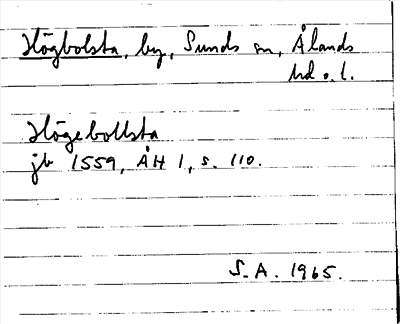 Högbolsta, by, Sunds sn, Ålands
hd o. l.
Högebollsta
jb 1559, ÅH 1, s. 110.
S. A. 1965.